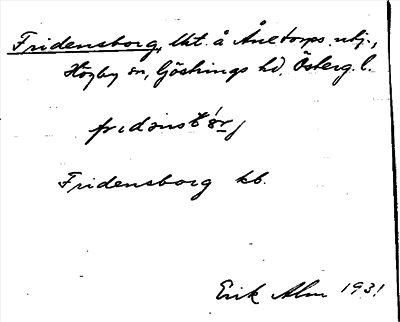 Fridensborg, lht. å Åketorps utj.,
Högby sn, Göstrings hd, Österg. l.
Fridensborg kb.
Erik Alm 1931